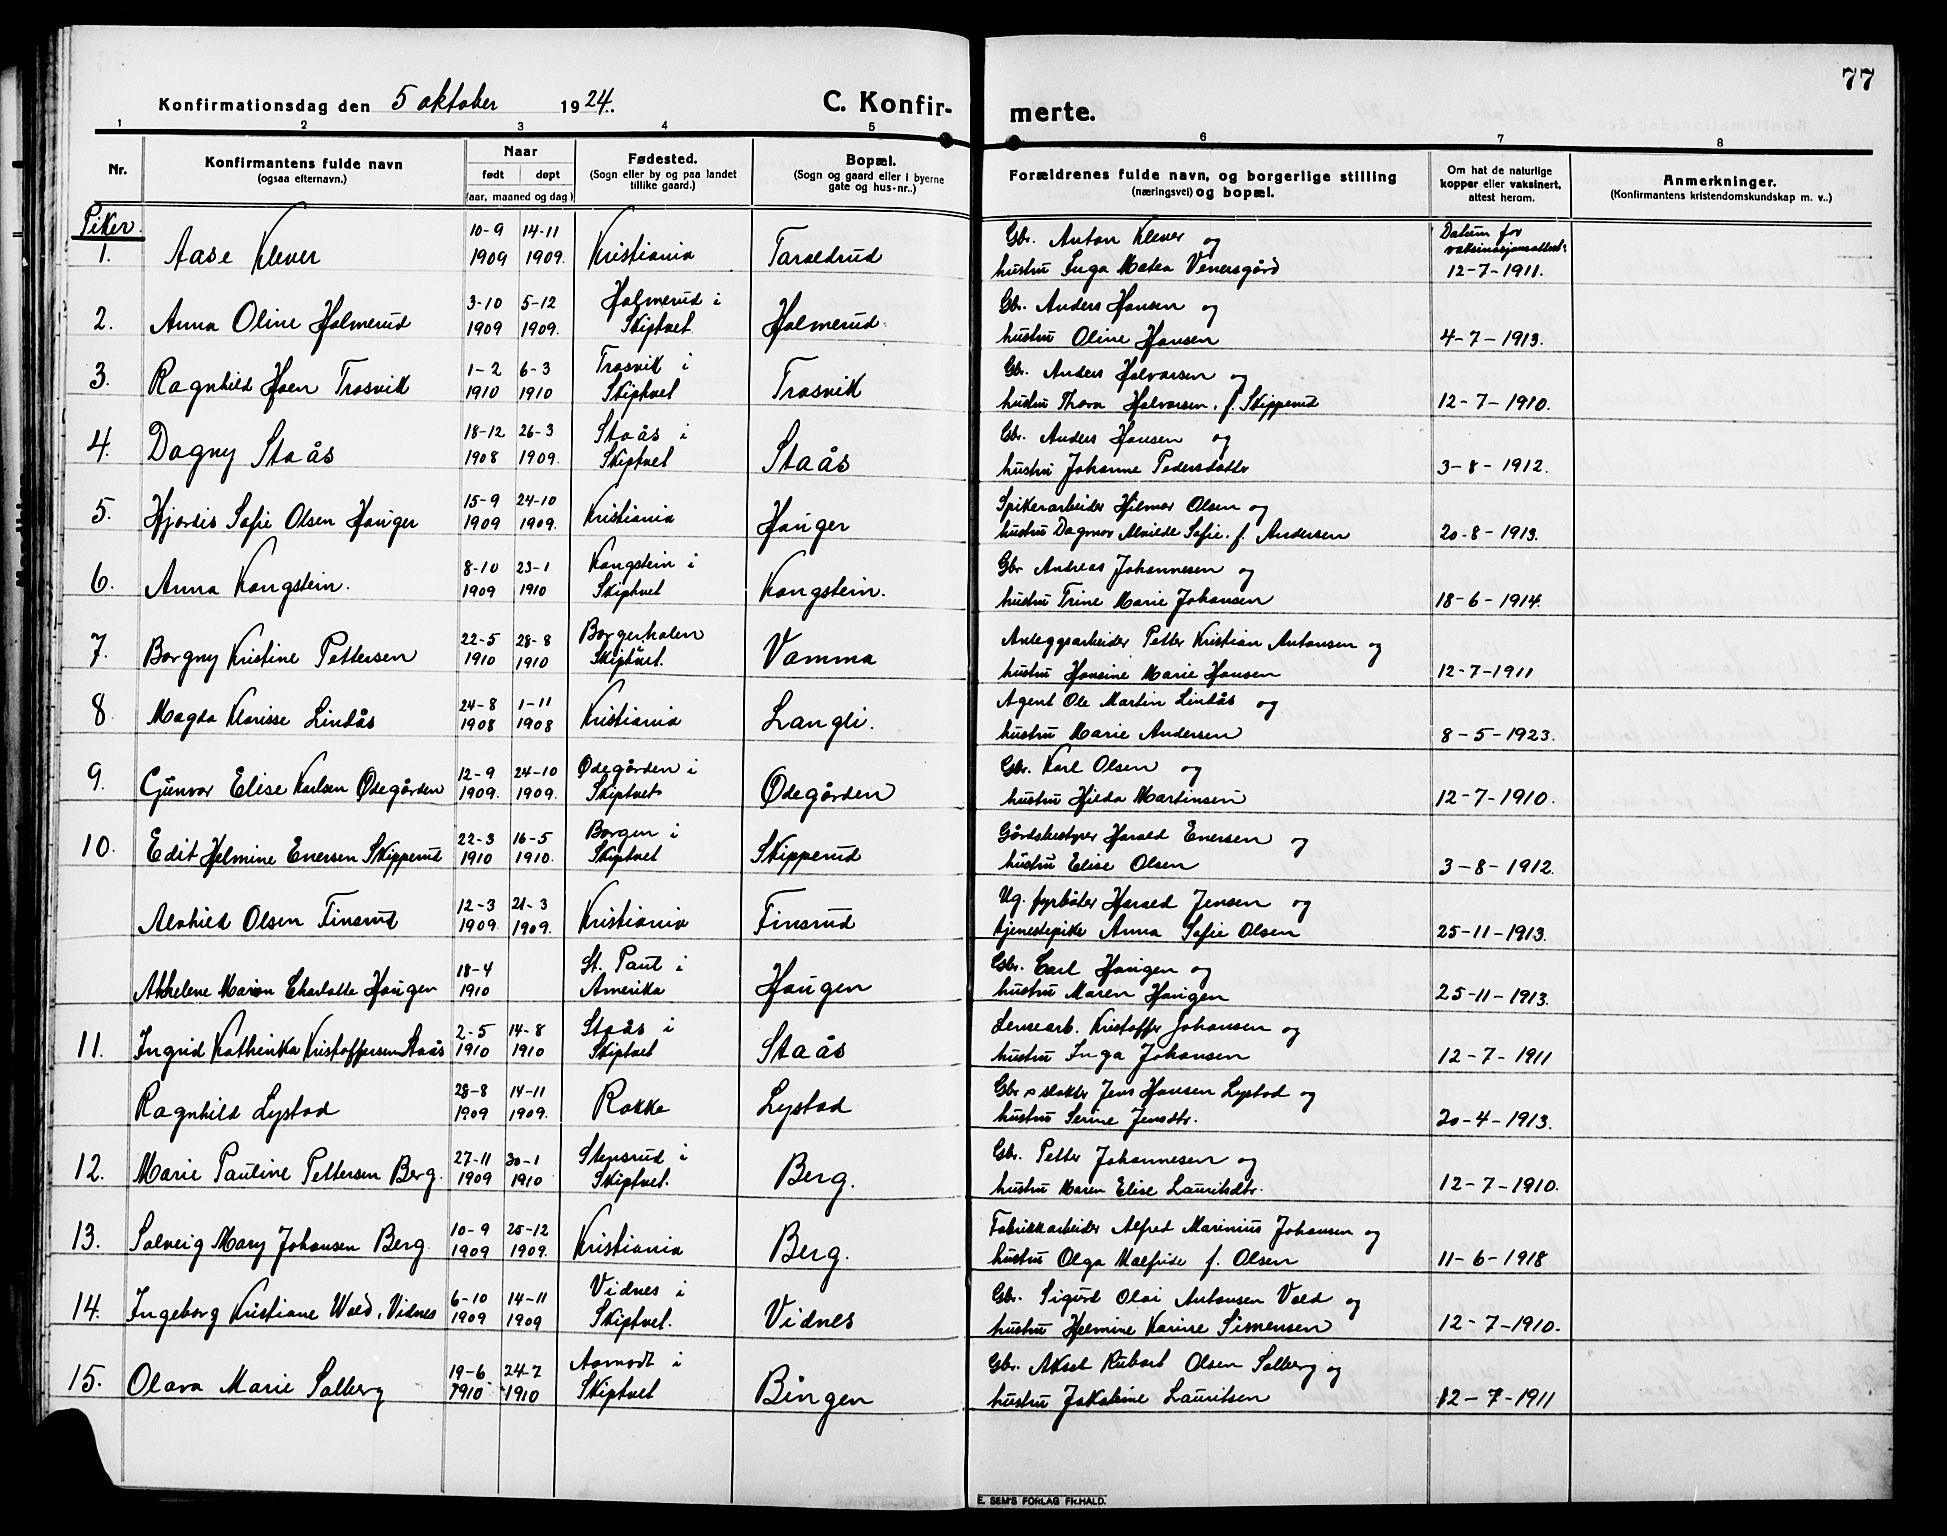 77
Konfirmationsdag den 5 oktober 1924. C. Konfirmerte.
1 2 3 4 5 6 7 8
Nr.
Konfirmantens fulde navn
(ogsaa efternavn.)
Naar
født døpt
(aar, maaned og dag)
Fødested.
(Sogn eller by og paa landet
tillike gaard.)
Bopæl.
(Sogn og gaard eller i byerne
gate og hus-nr..)
Forældrenes fulde navn, og borgerlige stilling
(næringsvei) og bopæl.
Om hat de naturlige
kopper eller vaksinert,
attest herom.
Anmerkninger.
(Konfirmantens kristendomskundskap m. v..)
Piker.
10-9 14-11 Gbr. Anton Klever og Datum for
vaksinasjonsattest:
1. Aase Klever 1909 1909. Kristiania Taraldrud hustru Inga Matea Venersgård 12-7-1911.
3-10 5-12 Holmerud i Gbr. Anders Hansen og
2. Anna Oline Holmerud 1909 1909. Skiptvet Holmerud hustru Oline Hansen 4-7-1913.
1-2 6-3 Trosvik i Gbr. Anders Halvorsen og
3. Ragnhild Hoen Trosvik 1910 1910 Skiptvet Trosvik hustru Thora Halvorsen, f. Skipperud 12-7-1910.
18-12 26-3 Staås i Gbr. Anders Hansen og
4. Dagny Staås 1908 1909. Skiptvet Staås hustru Johanne Pedersdatter 3-8-1912.
15-9 24-10 Spikerarbeider Hilmar Olsen og
5. Hjørdis Sofie Olsen Hauger 1909 1909. Kristiania Hauger hustru Dagmar Alvilde Sofie. f. Andersen 20-8-1913.
8-10 23-1 Kongstein i Gbr Andreas Johannesen og
6. Anna Kongstein. 1909 1910 Skiptvet Kongstein. hustru Trine Marie Johansen 18-6-1914.
22-5 28-8 Borgerholen Anleggsarbeider Petter Kristian Antonsen og
7. Borgny Kristine Pettersen 1910 1910 Skiptvet. Vamma hustru Hansine Marie Hansen 12-7-1911
24-8 1-11 Agent Ole Martin Lindås og
8. Magda Klarisse Lindås 1908 1908 Kristiania Langli. hustru Marie Andersen 8-5-1923.
12-9 24-10 Ødegården i Gbr. Karl Olsen og
9. Gunvor Elise Karlsen Ødegården 1909. 1909. Skiptvet Ødegården hustru Hilda Martinsen 12-7-1910.
22-3 16-5 Borgen i Gårdsbestyrer Harald Enersen og
10. Edit Helmine Enersen Skipperud 1910 1910. Skiptvet Skipperud hustru Elise Olsen 3-8-1912.
12-3 21-3 Ug. fyrbøter Harald Jensen og
Alvhild Olsen Finsrud 1909. 1909. Kristiania Finsrud tjenestepike Anna Sofie Olsen 25-11-1913.
18-4 St. Paul i Gbr. Carl Haugen og
Marion Charlotte Haugen 1910 Amerika Haugen hustru Maren Haugen 25-11-1913.
2-5 14-8 Staås i Lensearb. Kristoffer Johansen og
11. Ingrid Kathinka Kristoffersen Staås 1910 1910 Skiptvet Staås hustru Inga Johansen 12-7-1911
28-8 14-11 Gbr. Jens Hansen Lystad og
Ragnhild Lystad 1909 1909. Rokke Lystad hustru Serine Jensdtr. 20-4-1913.
27-11 30-1 Stensrud i Gbr. Petter Johannesen og
12. Marie Pauline Pettersen Berg. 1909 1910 Skiptvet. Berg. hustru Maren Elise Lauritsdtr. 12-7-1910.
10-9 25-12 Fabrikkarbeider Alfred Marinius Johansen og
13. Solveig Mary Johansen Berg. 1909 1909. Kristiania Berg. hustru Olga Malfride f. Olsen 11-6-1918
6-10 14-11 Vidnes i Gbr. Sigurd Olai Antonsen Vold og
14. Ingeborg Kristiane Wold, Vidnes 1909 1909 Skiptvet. Vidnes hustru Helmine Karine Simensen 12-7-1910.
19-6 24-7 Aamodt i Gbr. Aksel Rubart Olsen Solberg og
15. Olava Marie Solberg 1910 1910 Skiptvet Bingen hustru Jakobine Lauritsen 12-7-1911
E. SEM'S FORLAG FR.HALD.